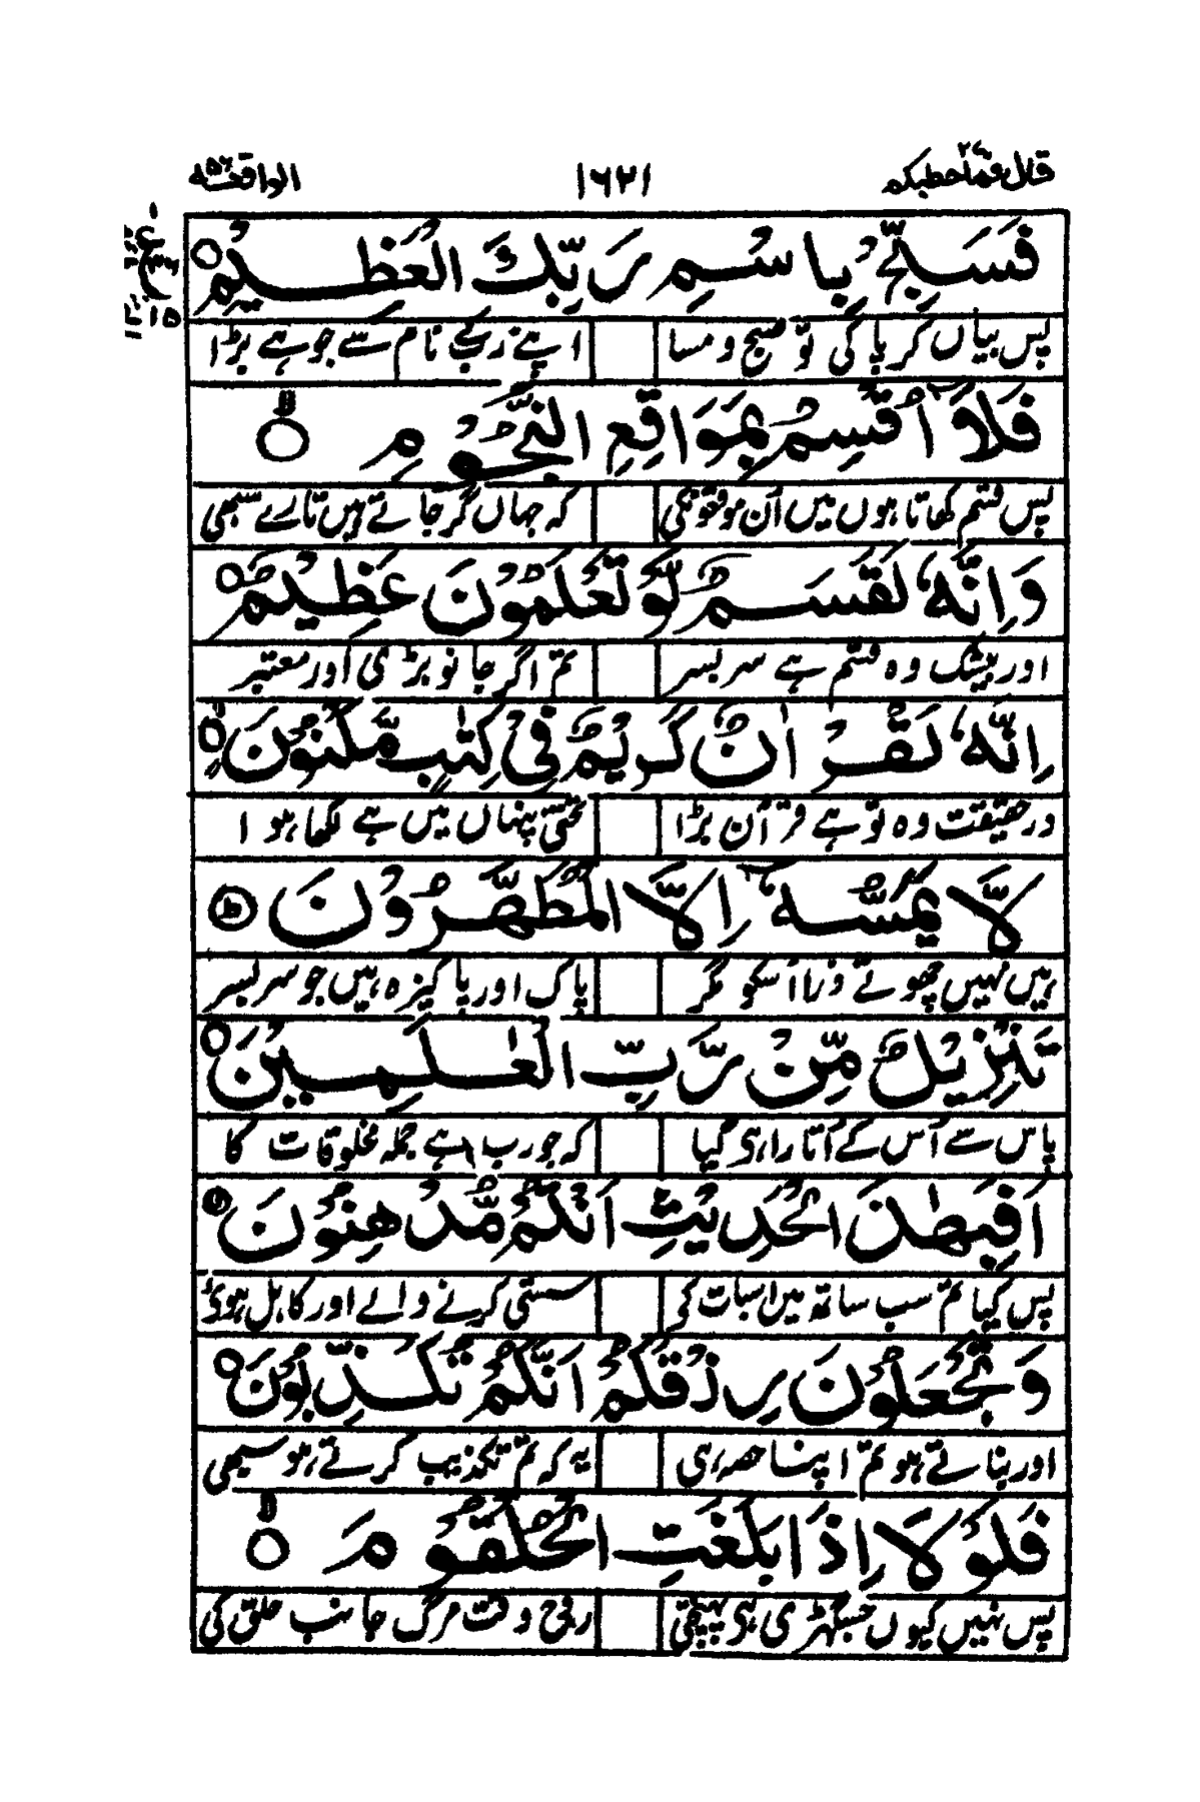 قال فما خطبکم ٢٧ ١٦٢١ الواقعة ٥٦
فَسَبِّحْ بِاسْمِ رَبِّكَ الْعَظِيْمِ ○
پس بیاں کر پاکی تو صبح و مسا اپنے رب کے نام سے جو ہے بڑا
فَلَآ اُقْسِمُ بِمَوٰقِعِ النُّجُوْمِ ○
پس قسم کھاتا ہوں میں اُن موقعونکی کہ جہاں گر جاتے ہیں تارے سبھی
وَاِنَّهٗ لَقَسَمٌ لَّوْ تَعْلَمُوْنَ عَظِيْمٌ ○
اور بیشک وہ قسم ہے سربسر تم اگر جانو بڑی اور معتبر
اِنَّهٗ لَقُرْاٰنٌ كَرِيْمٌ فِيْ كِتٰبٍ مَّكْنُوْنٍ ○
درحقیقت وہ تو ہے قرآن بڑا تختی پنہاں میں ہے لکھا ہوا
لَّا يَمَسُّهٗٓ اِلَّا الْمُطَهَّرُوْنَ ط
ہیں نہیں چھوتے ذرا اُسکو مگر پاک اور پاکیزہ ہیں جو سربسر
تَنْزِيْلٌ مِّنْ رَّبِّ الْعٰلَمِيْنَ ○
پاس سے اُس کے اُتارا ہی گیا کہ جو رب ہے جملہ مخلوقات کا
اَفَبِهٰذَا الْحَدِيْثِ اَنْتُمْ مُّدْهِنُوْنَ
پس کیا تم سب ساتھ میں اسبات کے سستی کرنے والے اور کاہل ہوئے
وَتَجْعَلُوْنَ رِزْقَكُمْ اَنَّكُمْ تُكَذِّبُوْنَ ○
اور بناتے ہو تم اپنا حصہ ہی یہ کہ تم تکذیب کرتے ہو سبھی
فَلَوْلَآ اِذَا بَلَغَتِ الْحُلْقُوْمَ ○
پس نہیں کیوں جسگھڑی ہی پہنچتی روح وقت مرگ جانب حلق کی